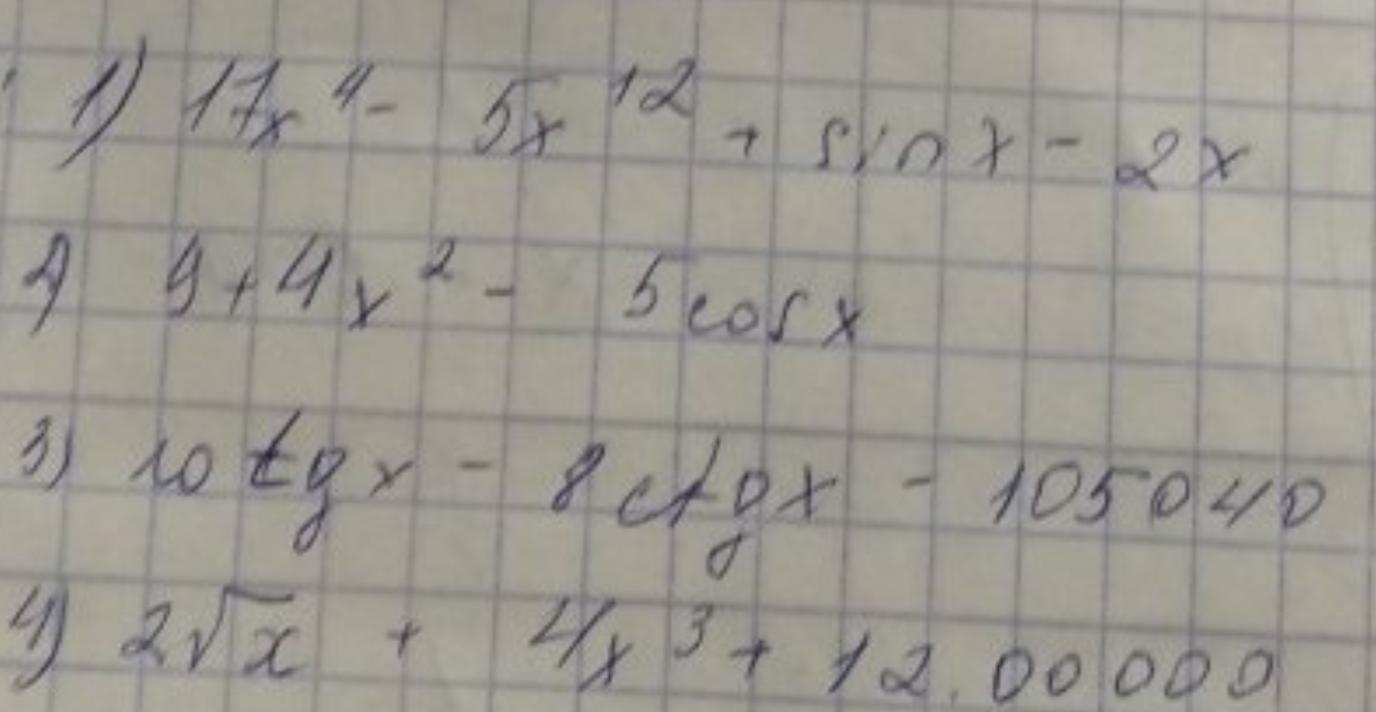 1) 17x⁴ - 5x¹² + sin x - 2x
2) 9 + 4x² - 5cos x
3) 10 tg x - 8 ctg x - 105040
4) 2√x + 4x³ + 12.00000